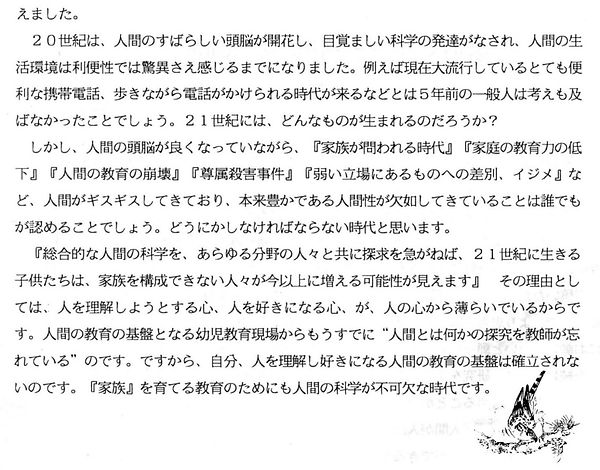 えました。
２０世紀は、人間のすばらしい頭脳が開花し、目覚ましい科学の発達がなされ、人間の生
活環境は利便性では驚異さえ感じるまでになりました。例えば現在大流行しているとても便
利な携帯電話、歩きながら電話がかけられる時代が来るなどとは５年前の一般人は考えも及
ばなかったことでしょう。２１世紀には、どんなものが生まれるのだろうか？
しかし、人間の頭脳が良くなっていながら、『家族が問われる時代』『家庭の教育力の低
下』『人間の教育の崩壊』『尊属殺害事件』『弱い立場にあるものへの差別、イジメ』な
ど、人間がギスギスしてきており、本来豊かである人間性が欠如してきていることは誰でも
が認めることでしょう。どうにかしなければならない時代と思います。
『総合的な人間の科学を、あらゆる分野の人々と共に探求を急がねば、２１世紀に生きる
子供たちは、家族を構成できない人々が今以上に増える可能性が見えます』　その理由とし
ては、人を理解しようとする心、人を好きになる心、が、人の心から薄らいでいるからで
す。人間の教育の基盤となる幼児教育現場からもうすでに“人間とは何かの探究を教師が忘
れている”のです。ですから、自分、人を理解し好きになる人間の教育の基盤は確立されな
いのです。『家族』を育てる教育のためにも人間の科学が不可欠な時代です。